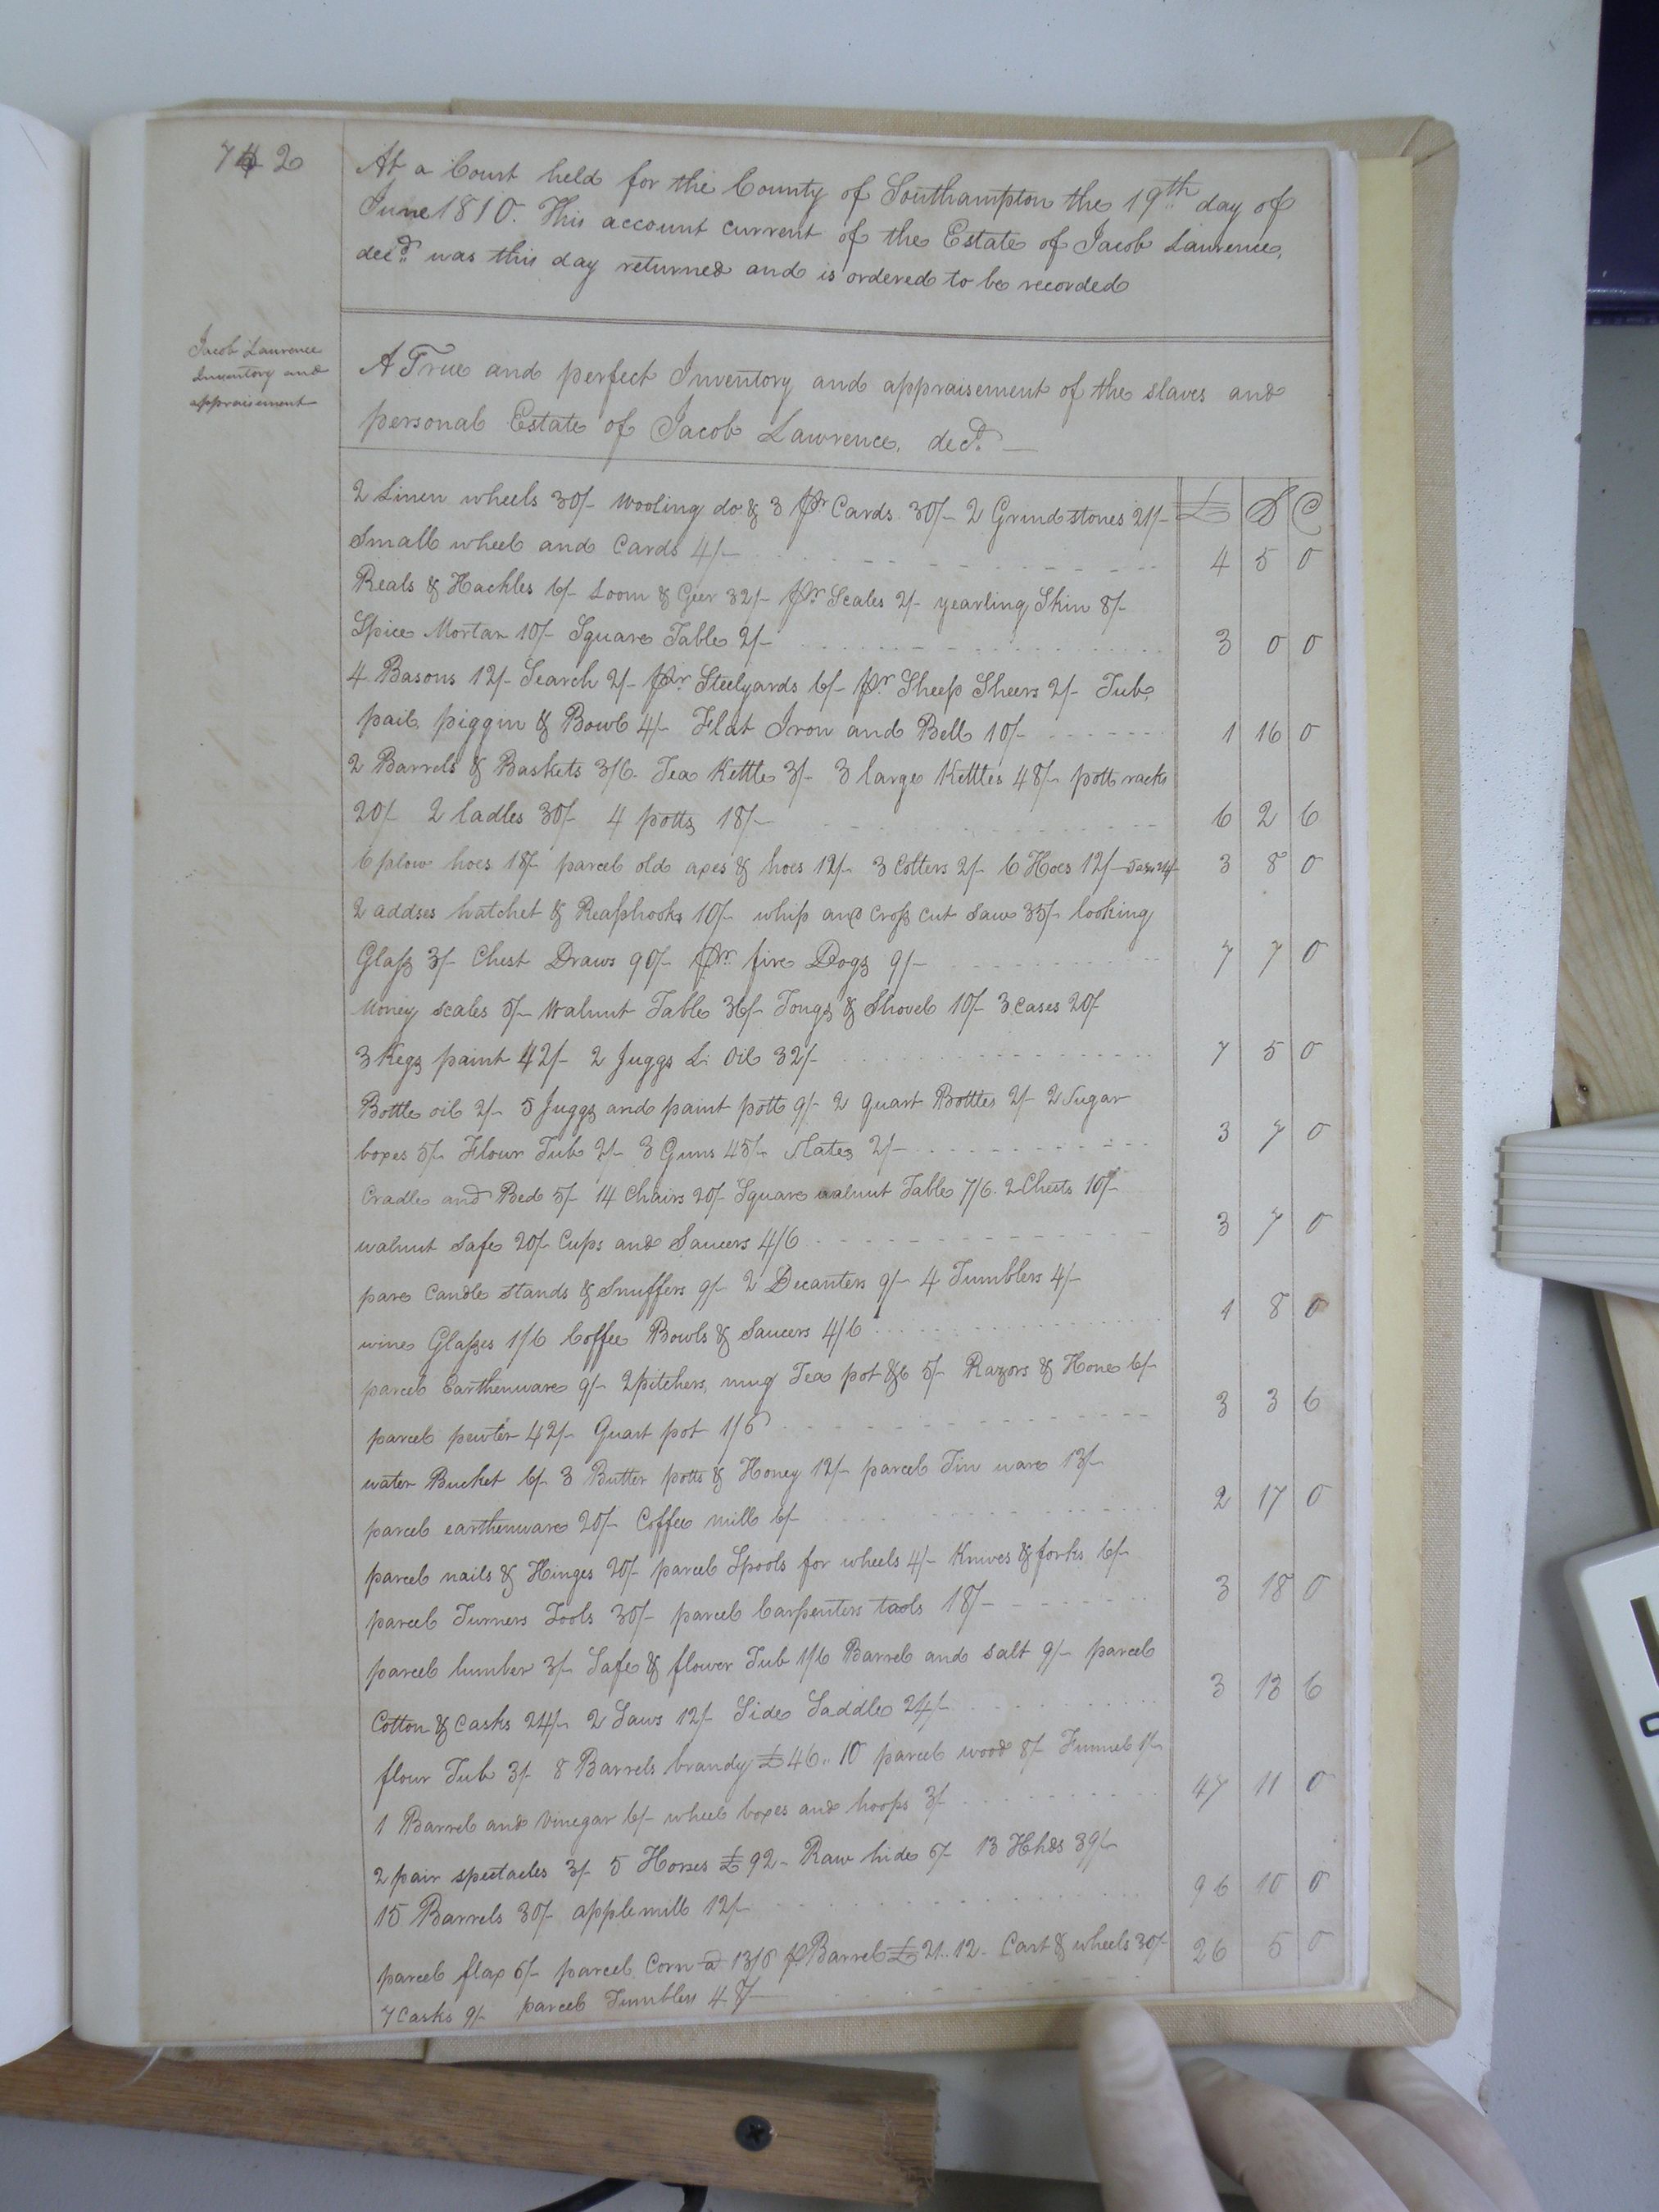 742
At a Court held for the County of Southampton the 19th day of
June 1810. This account current of the Estate of Jacob Lawrence,
decd. was this day returned and is ordered to be recorded
Jacob Lawrence
Inventory and
appraisement
A True and perfect Inventory and appraisement of the slaves and
personal Estate of Jacob Lawrence, decd. —
£ S C
2 Linen wheels 30/- Wooling do & 3 pr Cards 30/- 2 Grindstones 21/-
Small wheel and Cards 4/- 4 5 0
Reals & Hackles 6/- Loom & Geer 32/- pr Scales 2/- yearling Skin 8/-
Spice Mortar 10/- Square Table 2/- 3 0 0
4 Basons 12/- Search 2/- pr Steelyards 6/- pr Sheep Sheers 2/- Tub,
pail, piggin & Bowl 4/- Flat Iron and Bell 10/- 1 16 0
2 Barrels & Baskets 3/6. Tea Kettle 3/- 3 large Kettles 48/- pott racks
20/- 2 ladles 30/- 4 potts 18/- 6 2 6
6 plow hoes 18/- parcel old axes & hoes 12/- 3 Colters 2/- 6 Hoes 12/- 3 8 0
2 addses hatchet & Reaphooks 10/- whip and Cross cut saw 35/- looking
Glass 3/- Chest Draws 90/- pr. fire Dogs 9/- 7 7 0
Money scales 5/- Walnut Table 36/- Tongs & Shovel 10/- 3 Cases 20/-
3 Kegs paint 42/- 2 Juggs L. Oil 32/- 7 5 0
Bottle oil 2/- 5 Juggs and paint pott 9/- 2 Quart Bottles 2/- 2 Sugar
boxes 5/- Flour Tub 2/- 3 Guns 45/- Slates 2/- 3 7 0
Cradle and Bed 5/- 14 Chairs 20/- Square walnut Table 7/6. 2 Chests 10/-
walnut safe 20/- Cups and Saucers 4/6 3 7 0
pare Candle stands & Snuffers 9/- 2 Decanters 9/- 4 Tumblers 4/-
wine Glasses 1/6 Coffee Bowls & Saucers 4/6 1 8 0
parcel Earthenware 9/- 2 pitchers, mug Tea pot &c 5/- Razors & Hone 6/-
parcel pewter 42/- Quart pot 1/6 3 3 6
water Bucket 6/- 3 Butter potts & Honey 12/- parcel Tin ware 13/-
parcel earthenware 20/- Coffee mill 6/- 2 17 0
parcel nails & Hinges 20/- parcel Spools for wheels 4/- Knives & forks 6/-
parcel Turners Tools 30/- parcel Carpenters tools 18/- 3 18 0
parcel lumber 3/- Safe & flower Tub 1/6 Barrel and salt 9/- parcel
Cotton & Casks 24/- 2 Saws 12/- Side Saddle 24/- 3 13 6
flour Tub 3/- 8 Barrels brandy £46..10 parcel wood 8/- Funnel 1/-
1 Barrel and vinegar 6/- wheel boxes and hoops 3/- 47 11 0
2 pair spectacles 3/- 5 Horses £92 - Raw hide 6/- 13 Hhds 39/-
15 Barrels 30/- apple mill 12/- 96 10 0
parcel flax 6/- parcel Corn a 13/6 p Barrel £21..12 - Cart & wheels 30/- 26 5 0
7 Casks 9/- parcel Tumblers 48/-